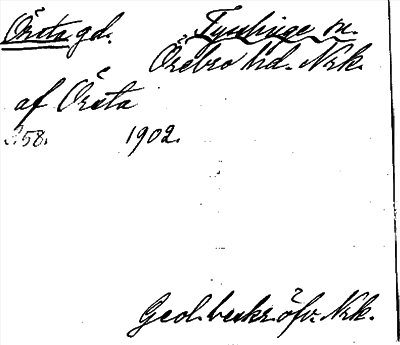 Örsta gd. Tysslinge sn.
Örebro hd. Nrk.
af Örsta
258. 1902.
Geol. beskr. öfv. Nrk.